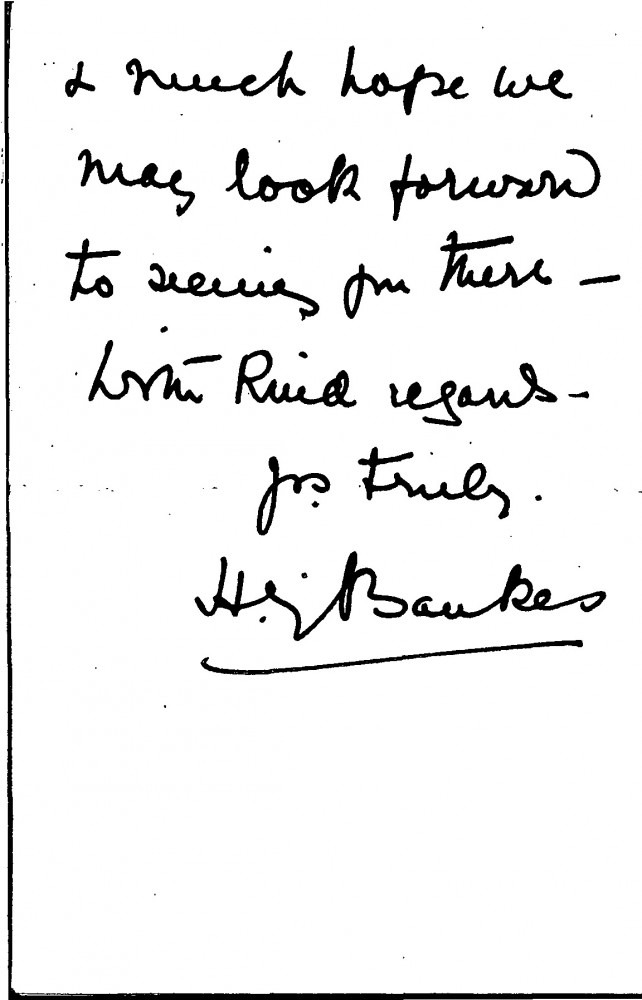 & much hope we
may look forward
to seeing you there –
With kind regards –
Yrs. truly.
H. J. Bankes